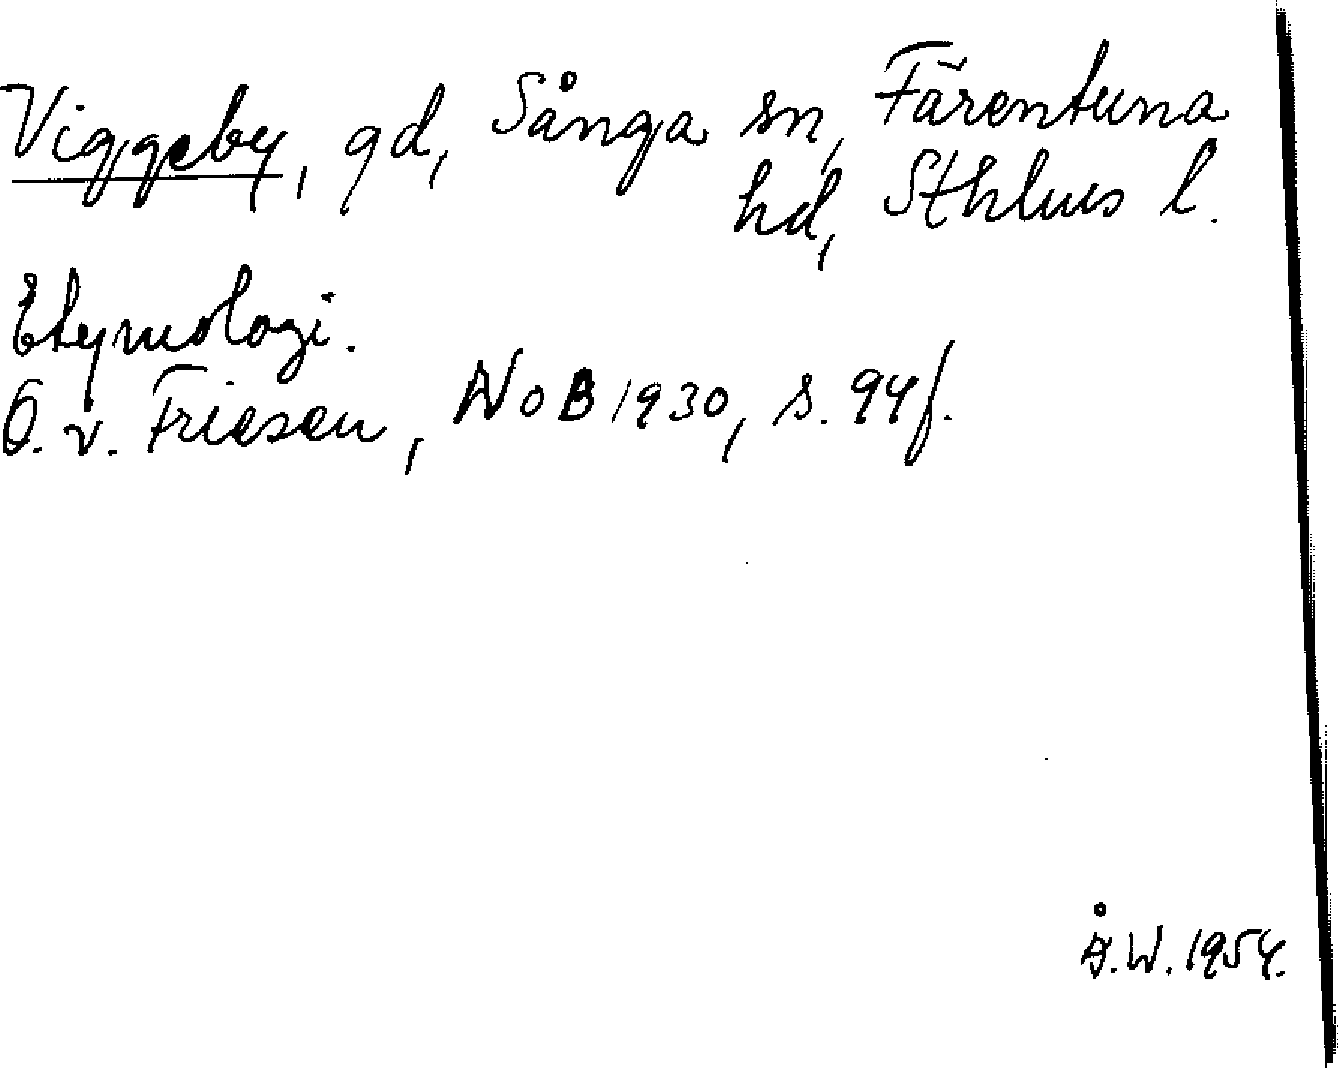 Viggeby, gd, Sånga sn, Färentuna
hd, Sthlms l.
Etymologi.
O. v. Friesen, NoB 1930, s. 94f.
Å.W. 1954.